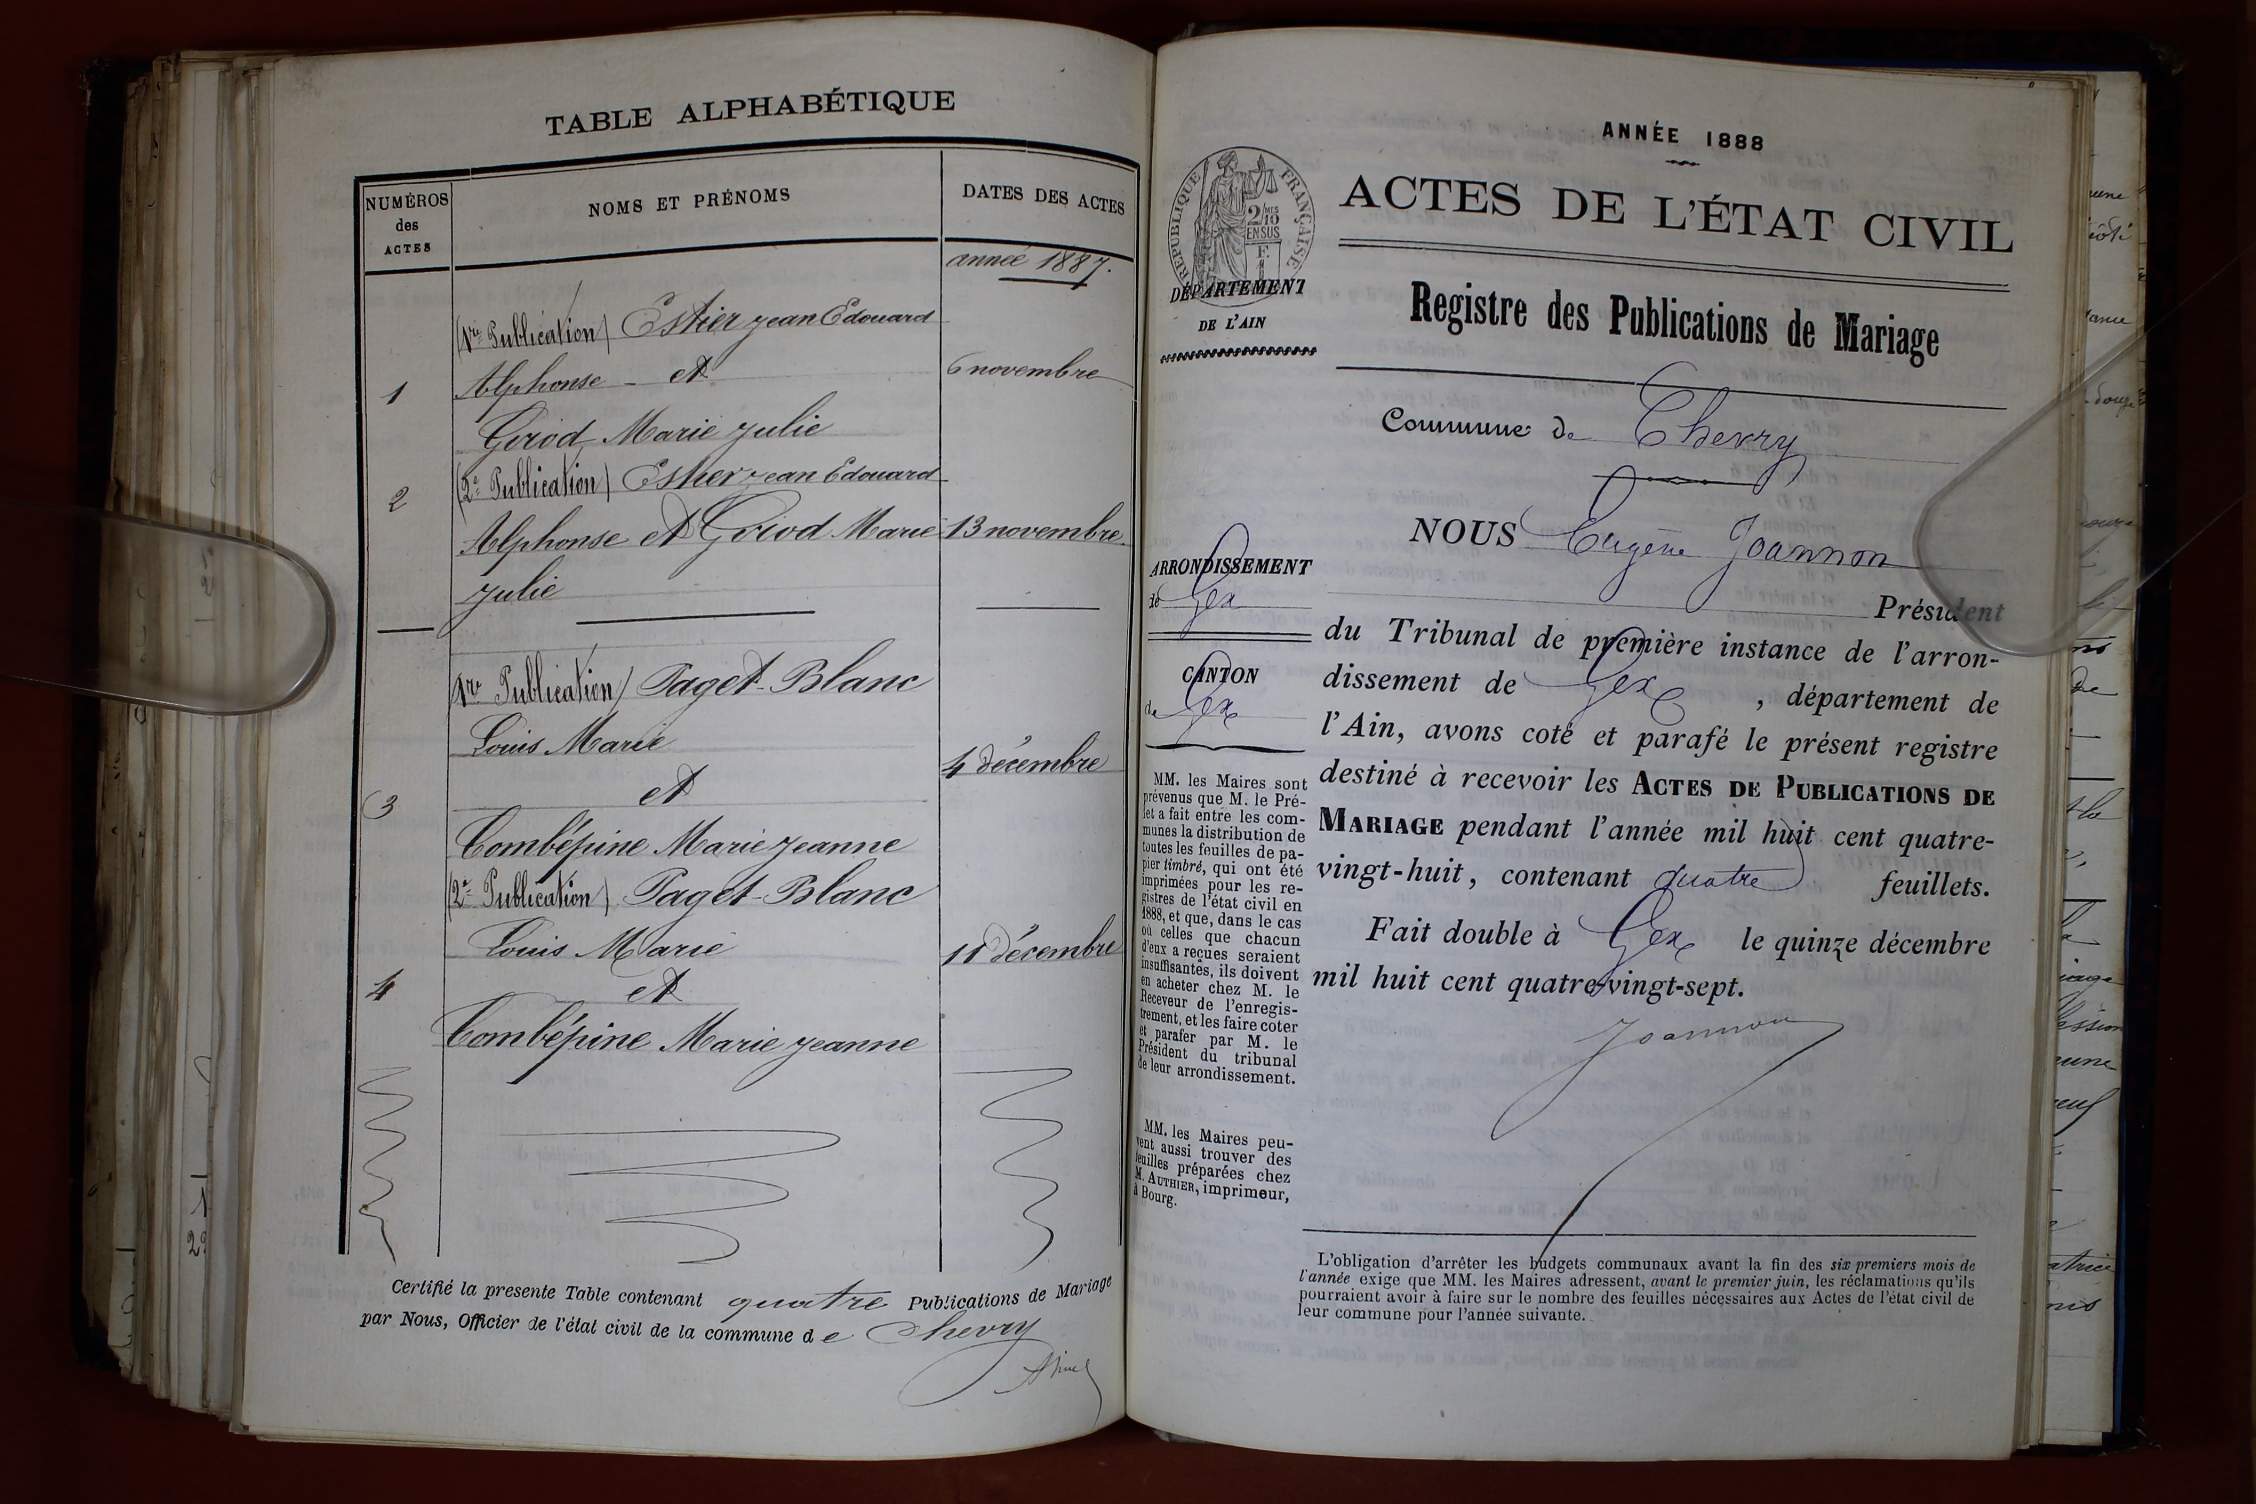 TABLE ALPHABÉTIQUE
NUMÉROS
des
ACTES
NOMS ET PRÉNOMS
DATES DES ACTES
année 1887.
(1re Publication) Estier Jean Edouard
1 Alphonse - et 6 novembre
Girod Marie Julie
(2e Publication) Estier Jean Edouard
2 Alphonse et Girod Marie 13 novembre
Julie
1re Publication) Paget-Blanc
Louis Marie
4 décembre
3 et
Combépine Marie Jeanne
(2e Publication) Paget-Blanc
Louis Marie 11 décembre
4 et
Combépine Marie Jeanne
Certifié la presente Table contenant quatre Publications de Mariage
par Nous, Officier de l'état civil de la commune de Chevry
ANNÉE 1888
ACTES DE L'ÉTAT CIVIL
RÉPUBLIQUE FRANÇAISE
2/10MES
EN SUS
F.
1
DÉPARTEMENT
DE L'AIN
Registre des Publications de Mariage
Commune de Chevry
ARRONDISSEMENT
de Gex
CANTON
de Gex
MM. les Maires sont
prévenus que M. le Pré-
fet a fait entre les com-
munes la distribution de
toutes les feuilles de pa-
pier timbré, qui ont été
imprimées pour les re-
gistres de l'état civil en
1888, et que, dans le cas
où celles que chacun
d'eux a reçues seraient
insuffisantes, ils doivent
en acheter chez M. le
Receveur de l'enregis-
trement, et les faire coter
et parafer par M. le
Président du tribunal
de leur arrondissement.
MM. les Maires peu-
vent aussi trouver des
feuilles préparées chez
M. AUTHIER, imprimeur,
à Bourg.
NOUS Eugène Joannon
Président
du Tribunal de première instance de l'arron-
dissement de Gex, département de
l'Ain, avons coté et parafé le présent registre
destiné à recevoir les ACTES DE PUBLICATIONS DE
MARIAGE pendant l'année mil huit cent quatre-
vingt-huit, contenant quatre feuillets.
Fait double à Gex le quinze décembre
mil huit cent quatre-vingt-sept.
Joannon
L'obligation d'arrêter les budgets communaux avant la fin des six premiers mois de
l'année exige que MM. les Maires adressent, avant le premier juin, les réclamations qu'ils
pourraient avoir à faire sur le nombre des feuilles nécessaires aux Actes de l'état civil de
leur commune pour l'année suivante.